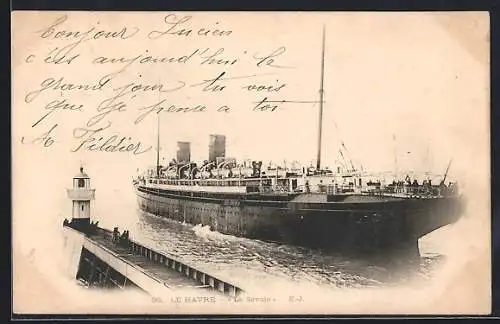 Bonjour Lucien
c'est aujourd'hui le
grand jour tu vois
que je pense a toi
A Fildier
36. LE HAVRE - "La Savoie" E.J.